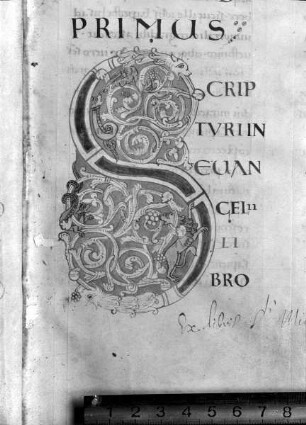 PRIMUS
SCRIP
TURUIN
EUAN
GELII
LI
BRO
Ex libris
1 2 3 4 5 6 7 8